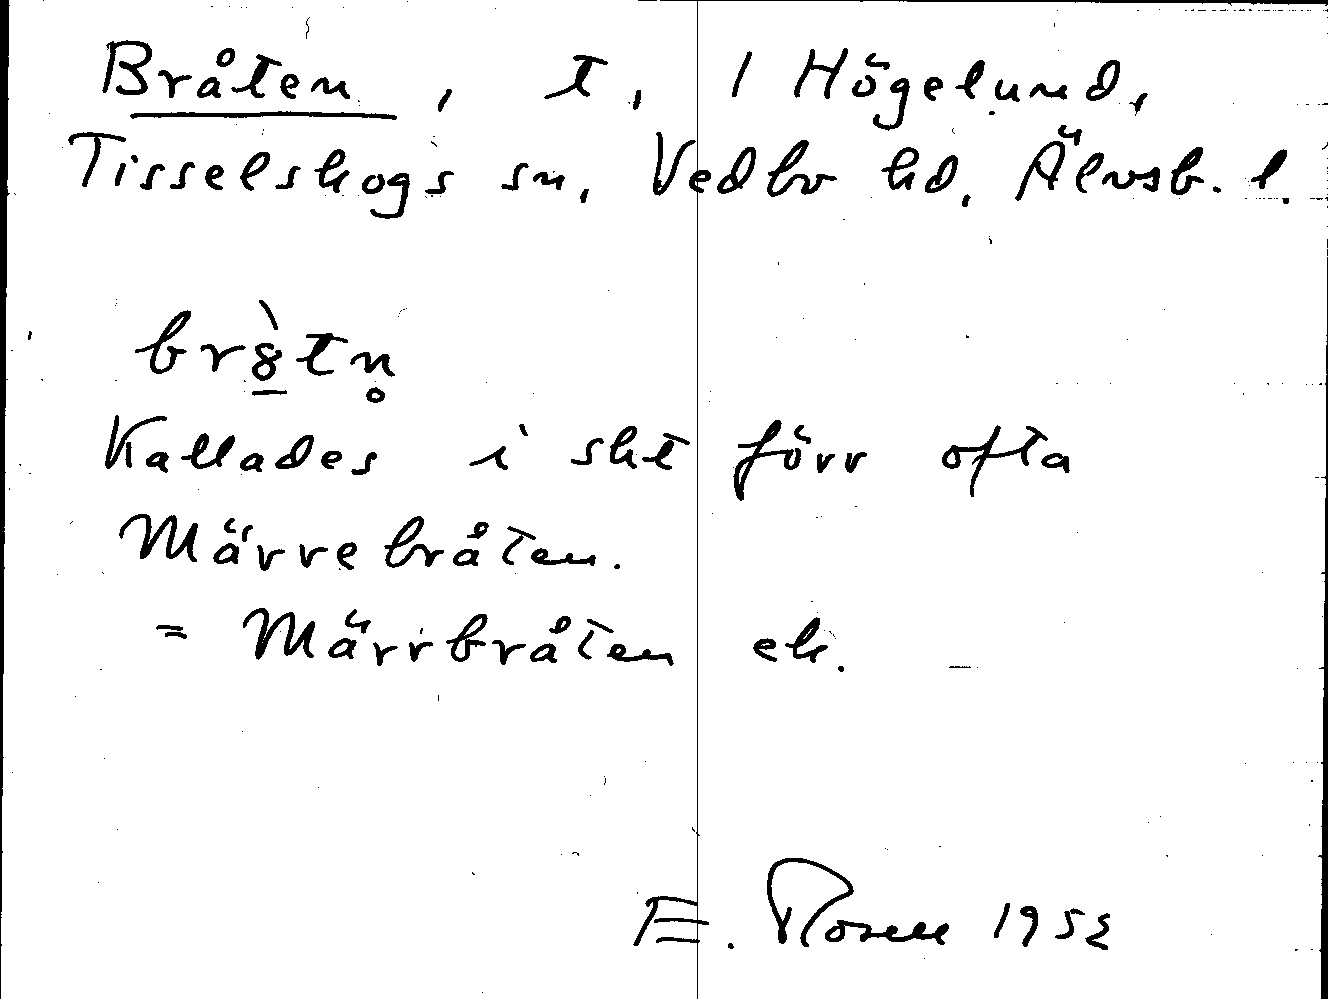 Bråten, t, 1 Högelund,
Tisselskogs sn, Vedbo hd, Älvsb. l.
br8̲̀tn̥
Kallades i skt förr ofta
Märrebråten.
= Märrbråten ek.
E. Rosell 1952